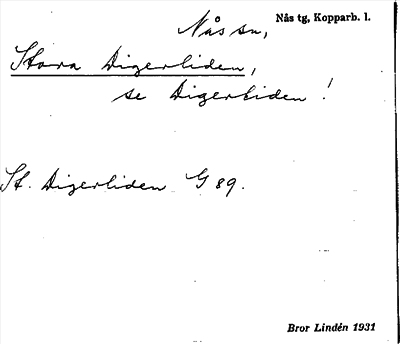 Nås sn, Nås tg, Kopparb. l.
Stora Digerliden,
se Digerliden !
St. Digerliden G 89.
Bror Lindén 1931